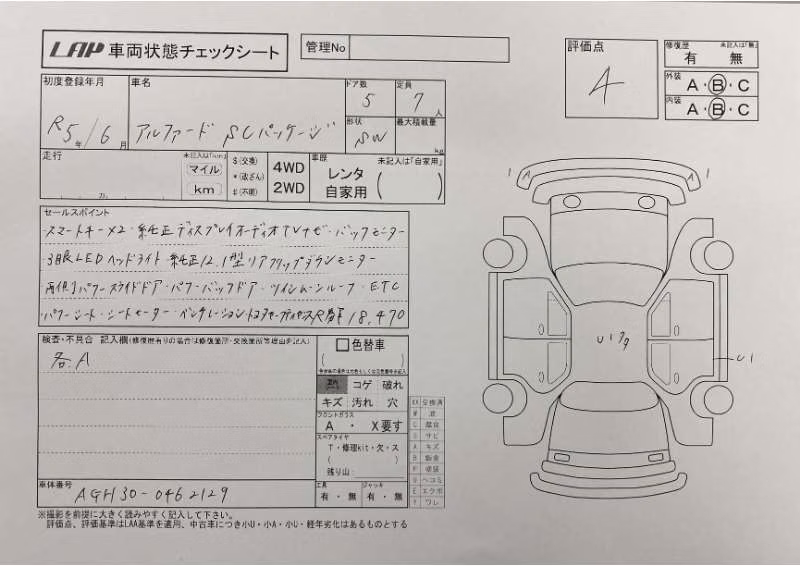 LAP 車両状態チェックシート
管理No
評価点
4
修復歴 未記入は「無」
有 無
外装 A・B・C
内装 A・B・C
初度登録年月
R5年/6月
車名
アルファード SCパッケージ
ドア数
5
定員
7人
形状
SW
最大積載量
kg
走行
マイル
km
$(交換)
*(改ざん)
#(不明)
4WD
2WD
車歴 未記入は「自家用」
レンタ
自家用
セールスポイント
・スマートキー×2・純正ディスプレイオーディオTVナビ・バックモニター
・3眼LEDヘッドライト・純正12.1型リアフリップダウンモニター
・両側パワースライドドア・パワーバックドア・ツインムーンルーフ・ETC
・パワーシート・シートヒーター・ベンチレーション
18,470
検査・不具合 記入欄
各A
色替車
コゲ 破れ
キズ 汚れ 穴
フロントガラス
A ・ X要す
スペアタイヤ
T・修理kit・欠・ス
残り山:
工具
有・無
ジャッキ
有・無
車体番号
AGH30-0462129
A
A
U1
※撮影を前提に大きく読みやすく記入して下さい。
評価点、評価基準はLAA基準を適用、中古車につき小U・小A・小U・経年劣化はあるものとする